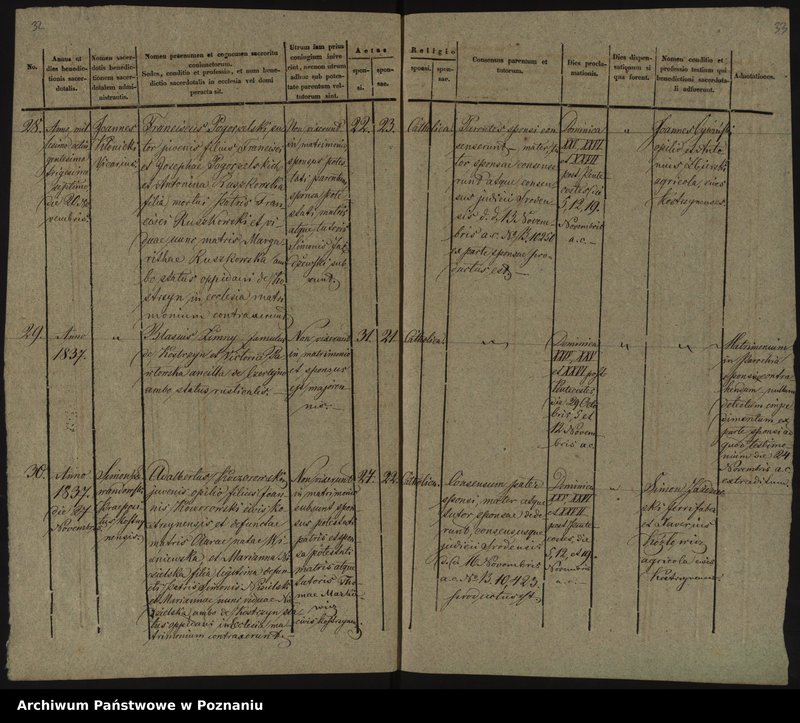 32
33
No.
Annus et
dies benedic-
tionis sacer-
dotalis.
Nomen sacer-
dotis benedic-
tionem sacer-
dotalem admi-
nistrantis.
Nomen praenomen et cognomen sacroritu
coniunctorum.
Sedes, conditio et professio, et num bene-
dictio sacerdotalis in ecclesia vel domi
peracta sit.
Utrum iam prius
coniugium inive-
rint, necnon utrum
adhuc sub potes-
tate parentum vel
tutorum sint.
Aetas
spon-
si.
spon-
sae.
Religio
sponsi.
spon-
sae.
Consensus parentum et
tutorum.
Dies procla-
mationis.
Dies dispen-
sationum si
qua forent.
Nomen conditio et
professio testium qui
benedictioni sacerdota-
li adfuerunt.
Adnotationes.
28.
Anno mil
lesimo octin
gentesimo
trigesimo
septimo
Joannes
Vicarius
Franciscus Pogorzelski su-
tor juvenis filius Francisci
et Josephae Pogorzelskich
et Antonina Ruszkowska
filia mortui patris Fran-
cisci Ruszkowski et vi-
duae nunc matris Marga-
rithae Ruszkowska am-
bo status oppidani de Ko-
strzyn, in ecclesia matri
monium contraxerunt
Non vixerunt
in matrimonio
sponsus potes-
tati parentum
sponsa pote-
stati matris
atque tutoris
Simonis
sub
sunt.
22.
23.
Catholica
Parentes sponsi con
senserunt, mater, tu-
tor sponsae consense
runt atque consen-
sus judicii Srodens-
sis d. d. 13. Novem-
bris a. c. No B. 10250
ex parte sponsae pro-
ductus est.
Dominica
XXV, XXVI
et XXVII
post Pente
costes, die
5, 12, 19.
Novembris
a. c.
"
Joannes
opilio et Anto-
nius
agricola, cives
Kostrzynenses
29.
Anno
1837.
"
Blasius Zimny famulus
de Kostrzyn et Victoria
ancilla de
ambo status rusticalis.
Non vixerunt
in matrimonio
et sponsus
est majoren-
nis.
31.
21.
Catholica
"
Dominica
XXIV, XXV
et XXVI post
Pentecostes
die 29 Octo
bris, 5 et
12. Novem-
bris a. c.
"
"
Matrimonium
in Parochia
sponsi contra
hendum, nullum
detectum impe
dimentum ex
parte sponsi ac
quod testimo
nium die 24
Novembris a. c.
extraditum.
30.
Anno
1837.
die 27
Novembris
Simon
Praepositus
Kostrzy-
nensis.
Adalbertus
juvenis opilio filius Joan-
nis civis Ko-
strzynensis et defunctae
matris Clarae natae Wi-
niewska et Marianna
filia legitima defun-
cti patris Simonis
et Mariannae nunc viduae
ambo de Kostrzyn sta-
tus oppidani in Ecclesia ma-
trimonium contraxerunt.
Non vixerunt
in matrimonio
subsunt spon-
sus potestati
patris et spon-
sa potestati
matris atque
tutoris Tho-
mae
civis Kostrzyn.
27.
22.
Catholica
Consensum pater
sponsi, mater atque
tutor sponsae dede-
runt, consensusque
judicii Srodensis
d. d. 16. Novembris
a. c. No B. 10,423.
productus est.
Dominica
XXV XXVI
et XXVII
post Pente
costes, die
5, 12, et 19.
Novembris
a. c.
"
Simon
ferrifaber
et Xaverius
agricola cives
Kostrzynenses
Archiwum Państwowe w Poznaniu